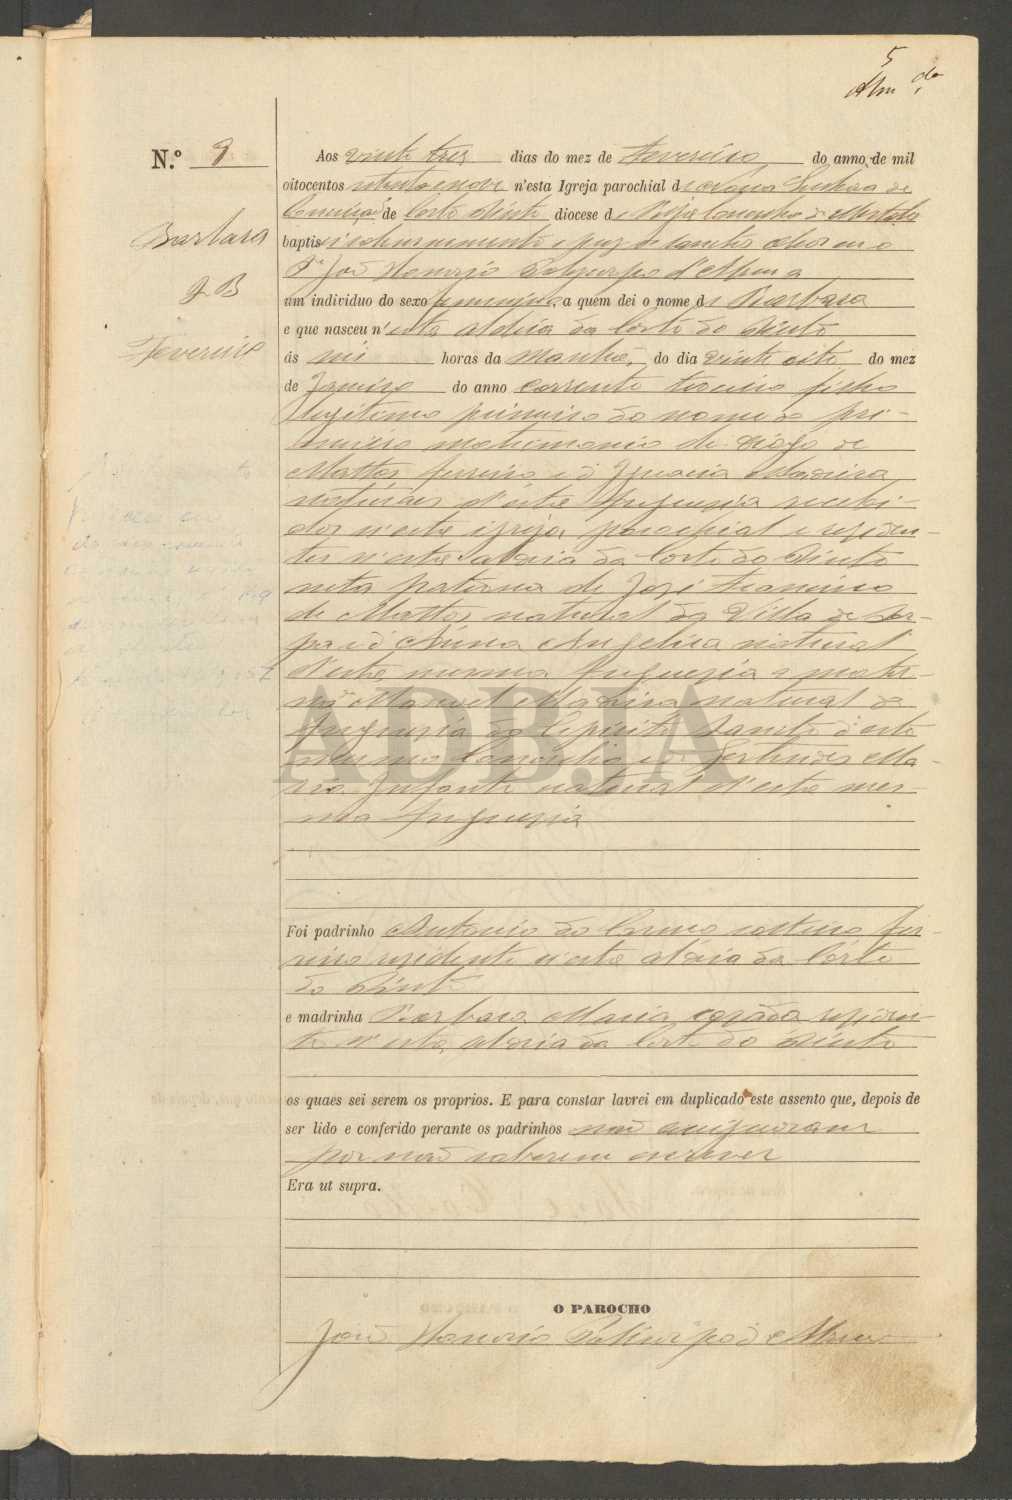 5
N.º 9
Barbara
23
Fevereiro
Aos vinte tres dias do mez de Fevereiro do anno de mil
oitocentos setenta e nove n'esta Igreja parochial de Nossa Senhora da
Conceição de Corte Pinto diocese de Beja Concelho de Mertola
baptisei solemnemente e puz os santos oleos eu o
P.e João Honorio Policarpo d'
um individuo do sexo feminino a quem dei o nome de Barbara
e que nasceu n'esta aldeia da Corte do Pinto
ás horas da manhã do dia vinte oito do mez
de Janeiro do anno corrente terceiro filho
legitimo primeiro do nome do pri-
meiro matrimonio de Diogo de
Mattos e de Ignacia Madeira
naturaes d'esta freguezia recebi-
dos n'esta igreja parochial e residen-
tes n'esta aldeia da Corte do Pinto
neta paterna de José Francisco
de Mattos natural da Villa de Ser-
pa e d'Anna Angelica natural
d'esta mesma freguezia e mater-
na de Manoel Madeira natural da
freguezia do Espirito Santo d'este
mesmo Concelho e de Gertrudes Ma-
ria Infante natural d'esta mes-
ma freguezia
ADBJA
Foi padrinho Antonio do Carmo solteiro
residente n'esta aldeia da Corte
do Pinto
e madrinha Barbara Maria cazada residen-
te n'esta aldeia da Corte do Pinto
os quaes sei serem os proprios. E para constar lavrei em duplicado este assento que, depois de
ser lido e conferido perante os padrinhos não assignaram
por não saberem escrever
Era ut supra.
O PAROCHO
João Honorio Policarpo d'